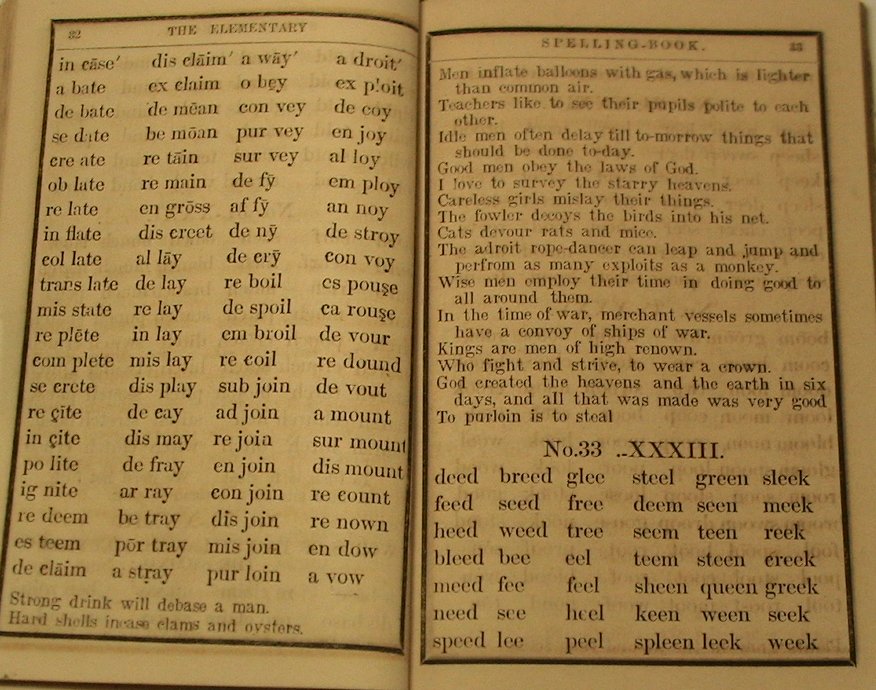 32 THE ELEMENTARY
in cāse′ dis clāim′ a wāy′ a droit′
a bate ex claim o bey ex ploit
de bate de mēan con vey de coy
se date be mōan pur vey en joy
cre ate re tāin sur vey al loy
ob late re main de fȳ em ploy
re late en grōss af fȳ an noy
in flate dis creet de nȳ de stroy
col late al lāy de crȳ con voy
trans late de lay re boil es pouşe
mis state re lay de spoil ca rouşe
re plēte in lay em broil de vour
com plete mis lay re coil re dound
se crete dis play sub join de vout
re çīte de cay ad join a mount
in çite dis may re join sur mount
po lite de fray en join dis mount
ig nite ar ray con join re count
re deem be tray dis join re nown
es teem pōr tray mis join en dow
de clāim a stray pur loin a vow
Strong drink will debase a man.
Hard shells incase clams and oysters.
SPELLING-BOOK. 33
Men inflate balloons with gas, which is lighter
than common air.
Teachers like to see their pupils polite to each
other.
Idle men often delay till to-morrow things that
should be done to-day.
Good men obey the laws of God.
I love to survey the starry heavens.
Careless girls mislay their things.
The fowler decoys the birds into his net.
Cats devour rats and mice.
The adroit rope-dancer can leap and jump and
perfrom as many exploits as a monkey.
Wise men employ their time in doing good to
all around them.
In the time of war, merchant vessels sometimes
have a convoy of ships of war.
Kings are men of high renown.
Who fight and strive, to wear a crown.
God created the heavens and the earth in six
days, and all that was made was very good
To purloin is to steal
No.33 ..XXXIII.
deed breed glee steel green sleek
feed seed free deem seen meek
heed weed tree seem teen reek
bleed bee eel teem steen creek
meed fee feel sheen queen greek
need see heel keen ween seek
speed lee peel spleen leek week